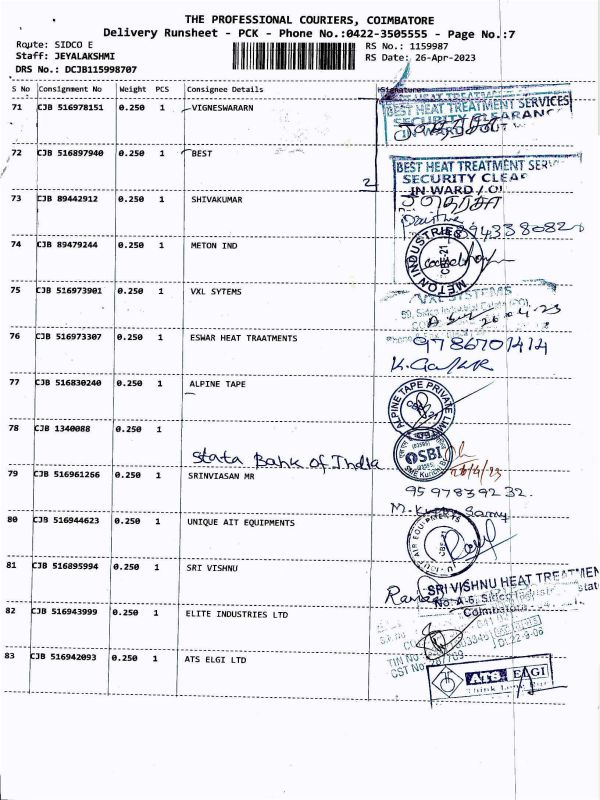 THE PROFESSIONAL COURIERS, COIMBATORE
Delivery Runsheet - PCK - Phone No.:0422-3505555 - Page No.:7
Route: SIDCO E
RS No.: 1159987
Staff: JEYALAKSHMI
RS Date: 26-Apr-2023
DRS No.: DCJB115998707
S No Consignment No Weight PCS Consignee Details Signature
71 CJB 516978151 0.250 1 VIGNESWARARN
BEST HEAT TREATMENT SERVICES
72 CJB 516897940 0.250 1 BEST
2
BEST HEAT TREATMENT SERV
SECURITY CLEAR
IN WARD / O
73 CJB 89442912 0.250 1 SHIVAKUMAR
74 CJB 89479244 0.250 1 METON IND
METON INDUSTRIES
CBE-21
75 CJB 516973901 0.250 1 VXL SYTEMS
VXL SYSTEMS
26.04.23
76 CJB 516973307 0.250 1 ESWAR HEAT TRAATMENTS
9786701414
77 CJB 516830240 0.250 1 ALPINE TAPE
ALPINE TAPE PRIVATE LIMITED
78 CJB 1340088 0.250 1
Stata Bank of India
SBI
79 CJB 516961266 0.250 1 SRINVIASAN MR
9597839232.
80 CJB 516944623 0.250 1 UNIQUE AIT EQUIPMENTS
81 CJB 516895994 0.250 1 SRI VISHNU
SRI VISHNU HEAT TREATMEN
No. A-5, Sidco Industrial Estate
Coimbatore
82 CJB 516943999 0.250 1 ELITE INDUSTRIES LTD
TIN NO
CST No
83 CJB 516942093 0.250 1 ATS ELGI LTD
ATS ELGI